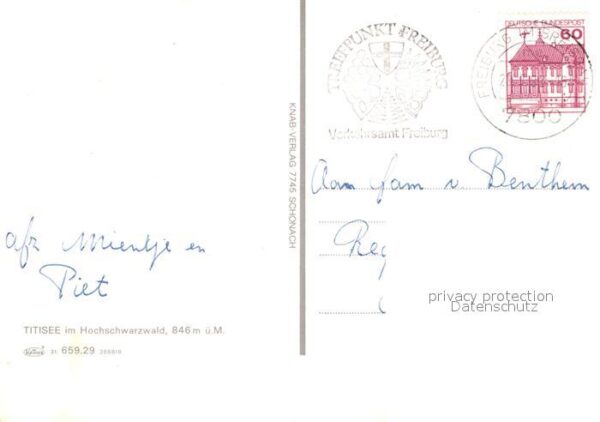 TREFFPUNKT FREIBURG
Verkehrsamt Freiburg
DEUTSCHE BUNDESPOST
60
FREIBURG
7800
KNAB-VERLAG 7745 SCHONACH
Aan fam v Benthem
afz Mientje en
Piet
privacy protection
Datenschutz
TITISEE im Hochschwarzwald, 846 m ü.M.
31 659.29